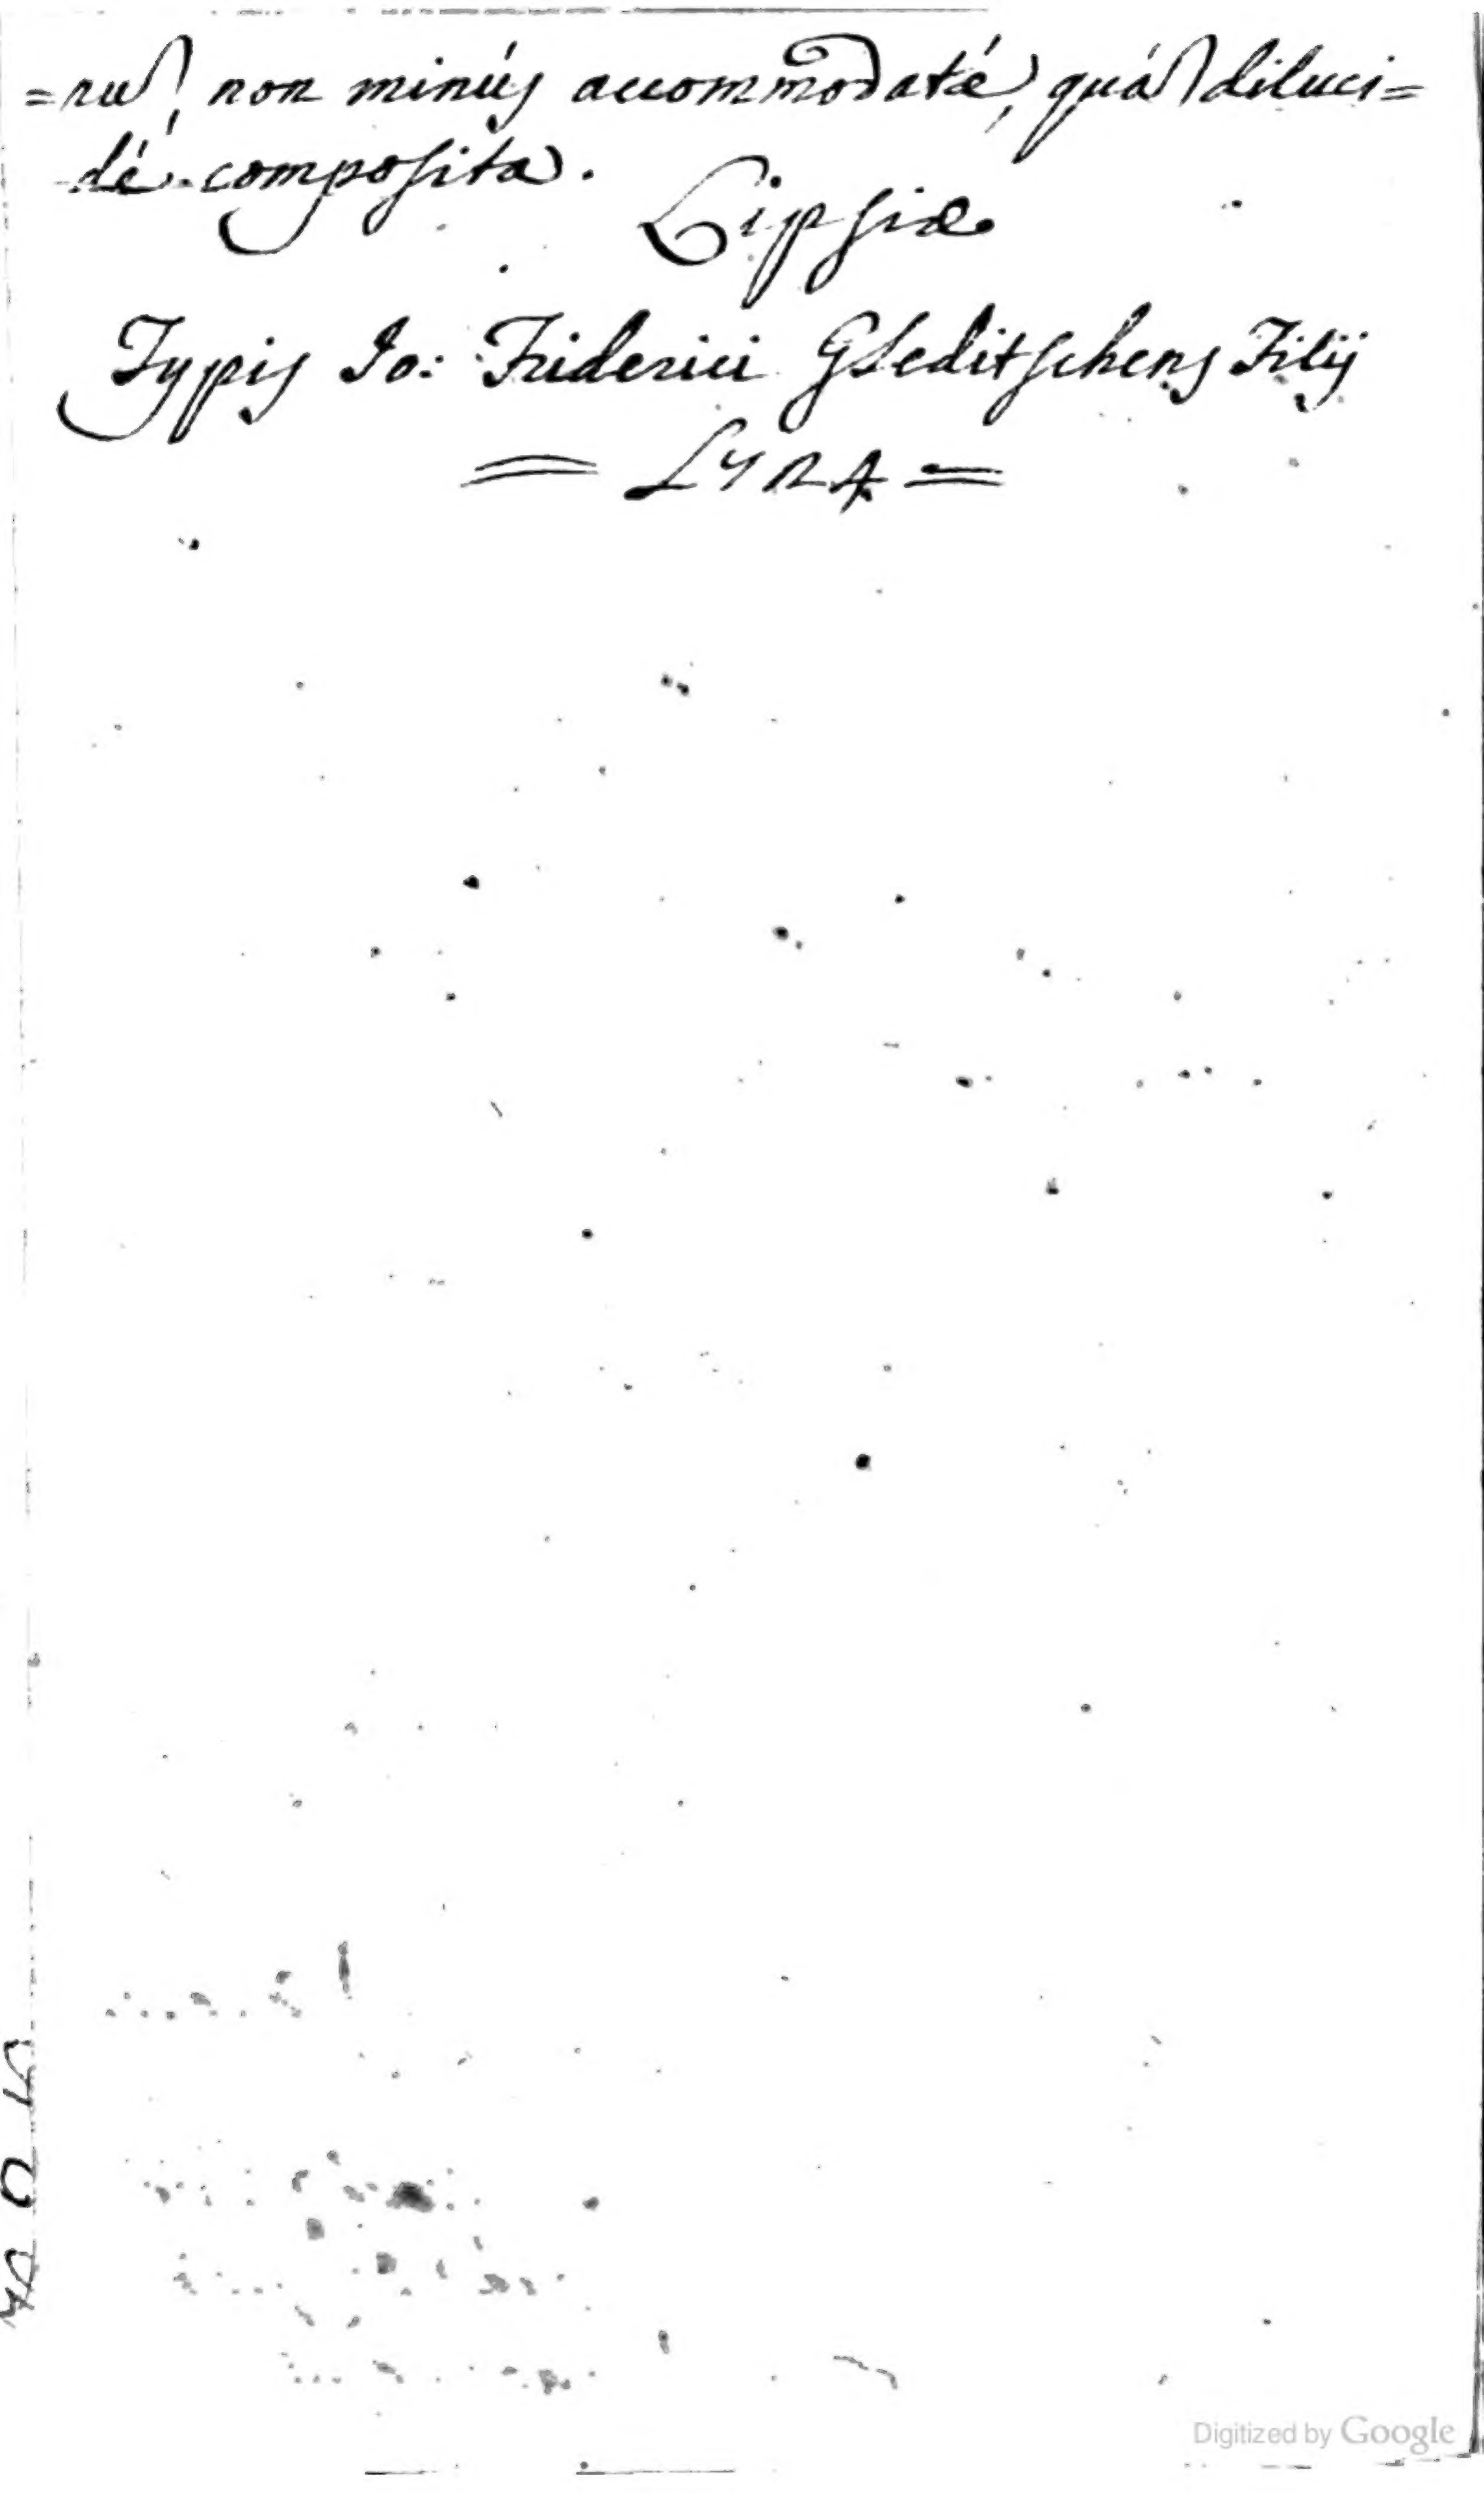 =rum, non minús accommodaté, quám diluci=
dé composita.
Lipsiæ
Typis Io: Friderici Gleditschens Filij
= LYRA =
Digitized by Google